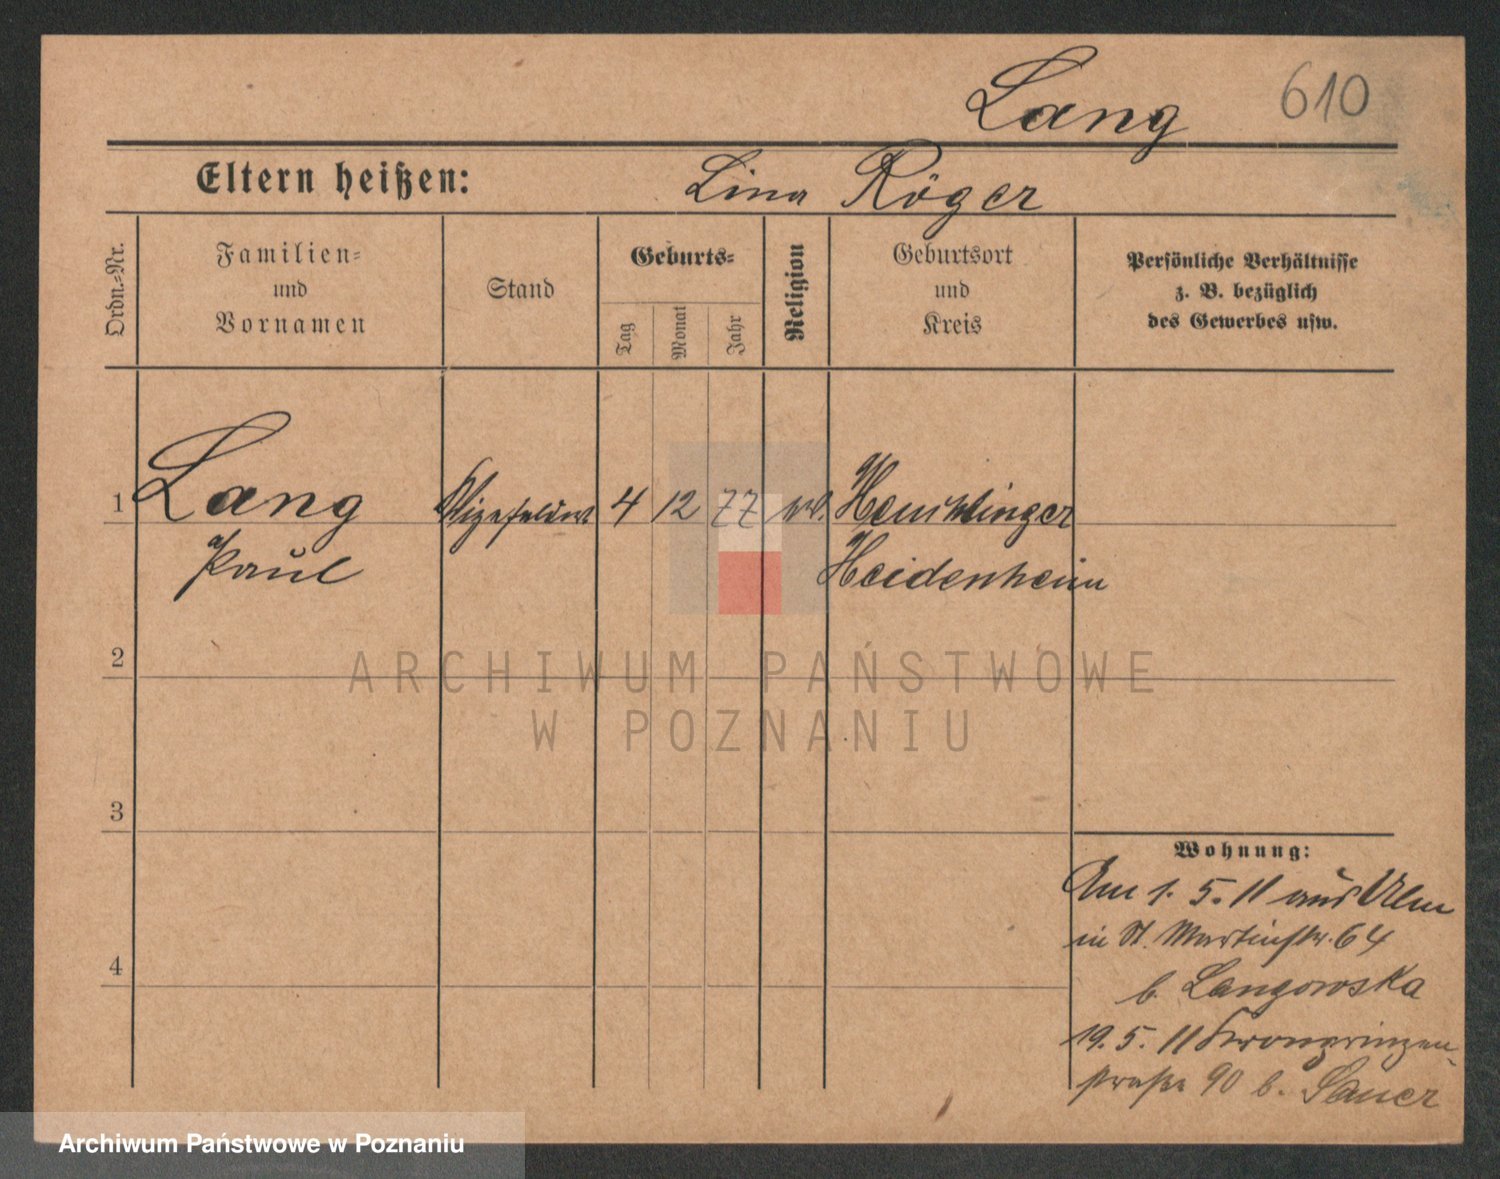 Lang 610
Eltern heißen: Lina Röger
Ordn.=Nr.
Familien=
und
Vornamen
Stand
Geburts=
Tag
Monat
Jahr
Religion
Geburtsort
und
Kreis
Persönliche Verhältnisse
z. B. bezüglich
des Gewerbes usw.
1 Lang 4 12 77
Paul Heidenheim
2
ARCHIWUM PAŃSTWOWE
W POZNANIU
3
Wohnung:
Am 1. 5. 11 aus Ulm
in St. Martinstr. 64
4
b. Langowska
19. 5. 11 Kronprinzen-
straße 90 b. Sauer
Archiwum Państwowe w Poznaniu